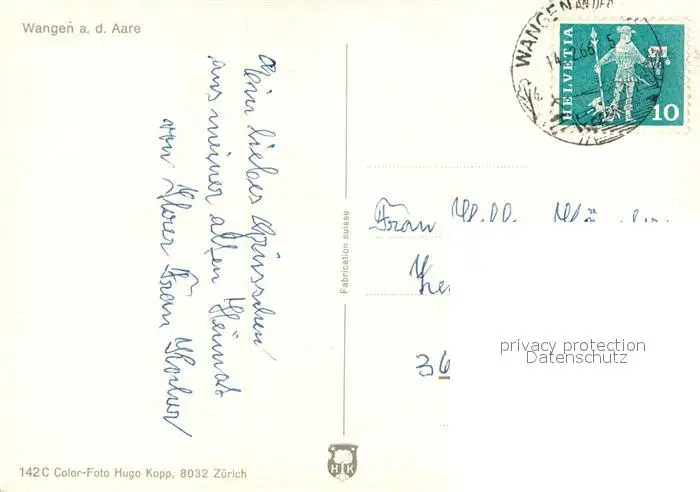 Wangen a. d. Aare
WANGEN AN DER
14. 2.66 5
HELVETIA
10
Ein liebes Grüsschen
aus meiner alten Heimat
von Ihrer Frau
Fabrication suisse
Frau
36
privacy protection
Datenschutz
142 C Color-Foto Hugo Kopp, 8032 Zürich
H K